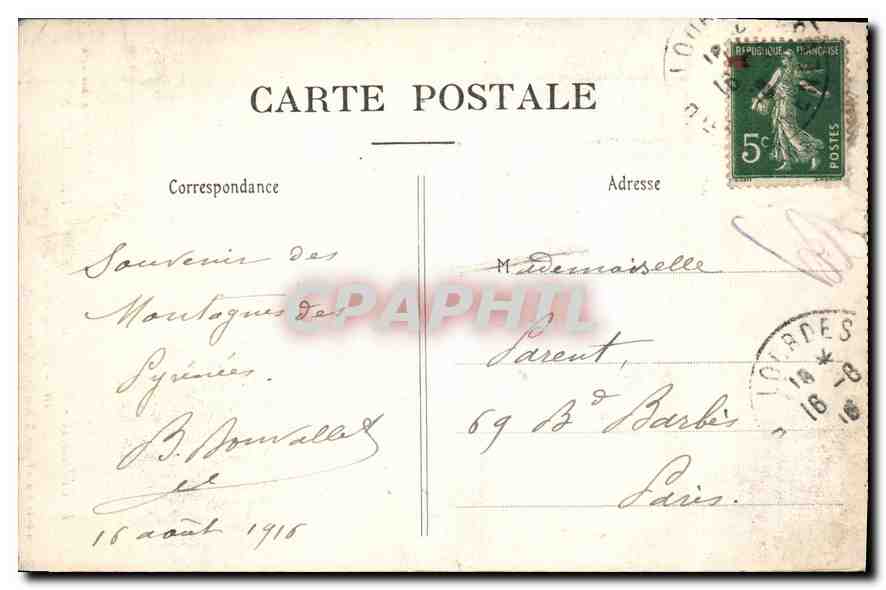 CARTE POSTALE
Correspondance
Adresse
RÉPUBLIQUE FRANÇAISE
5c
POSTES
Souvenir des
Montagnes des
Pyrénées.
B. Bouvallet
16 août 1916
Mademoiselle
Parent,
69 Bd Barbès
Paris.
LOURDES
18 *
16 -8
16
CPAPHIL